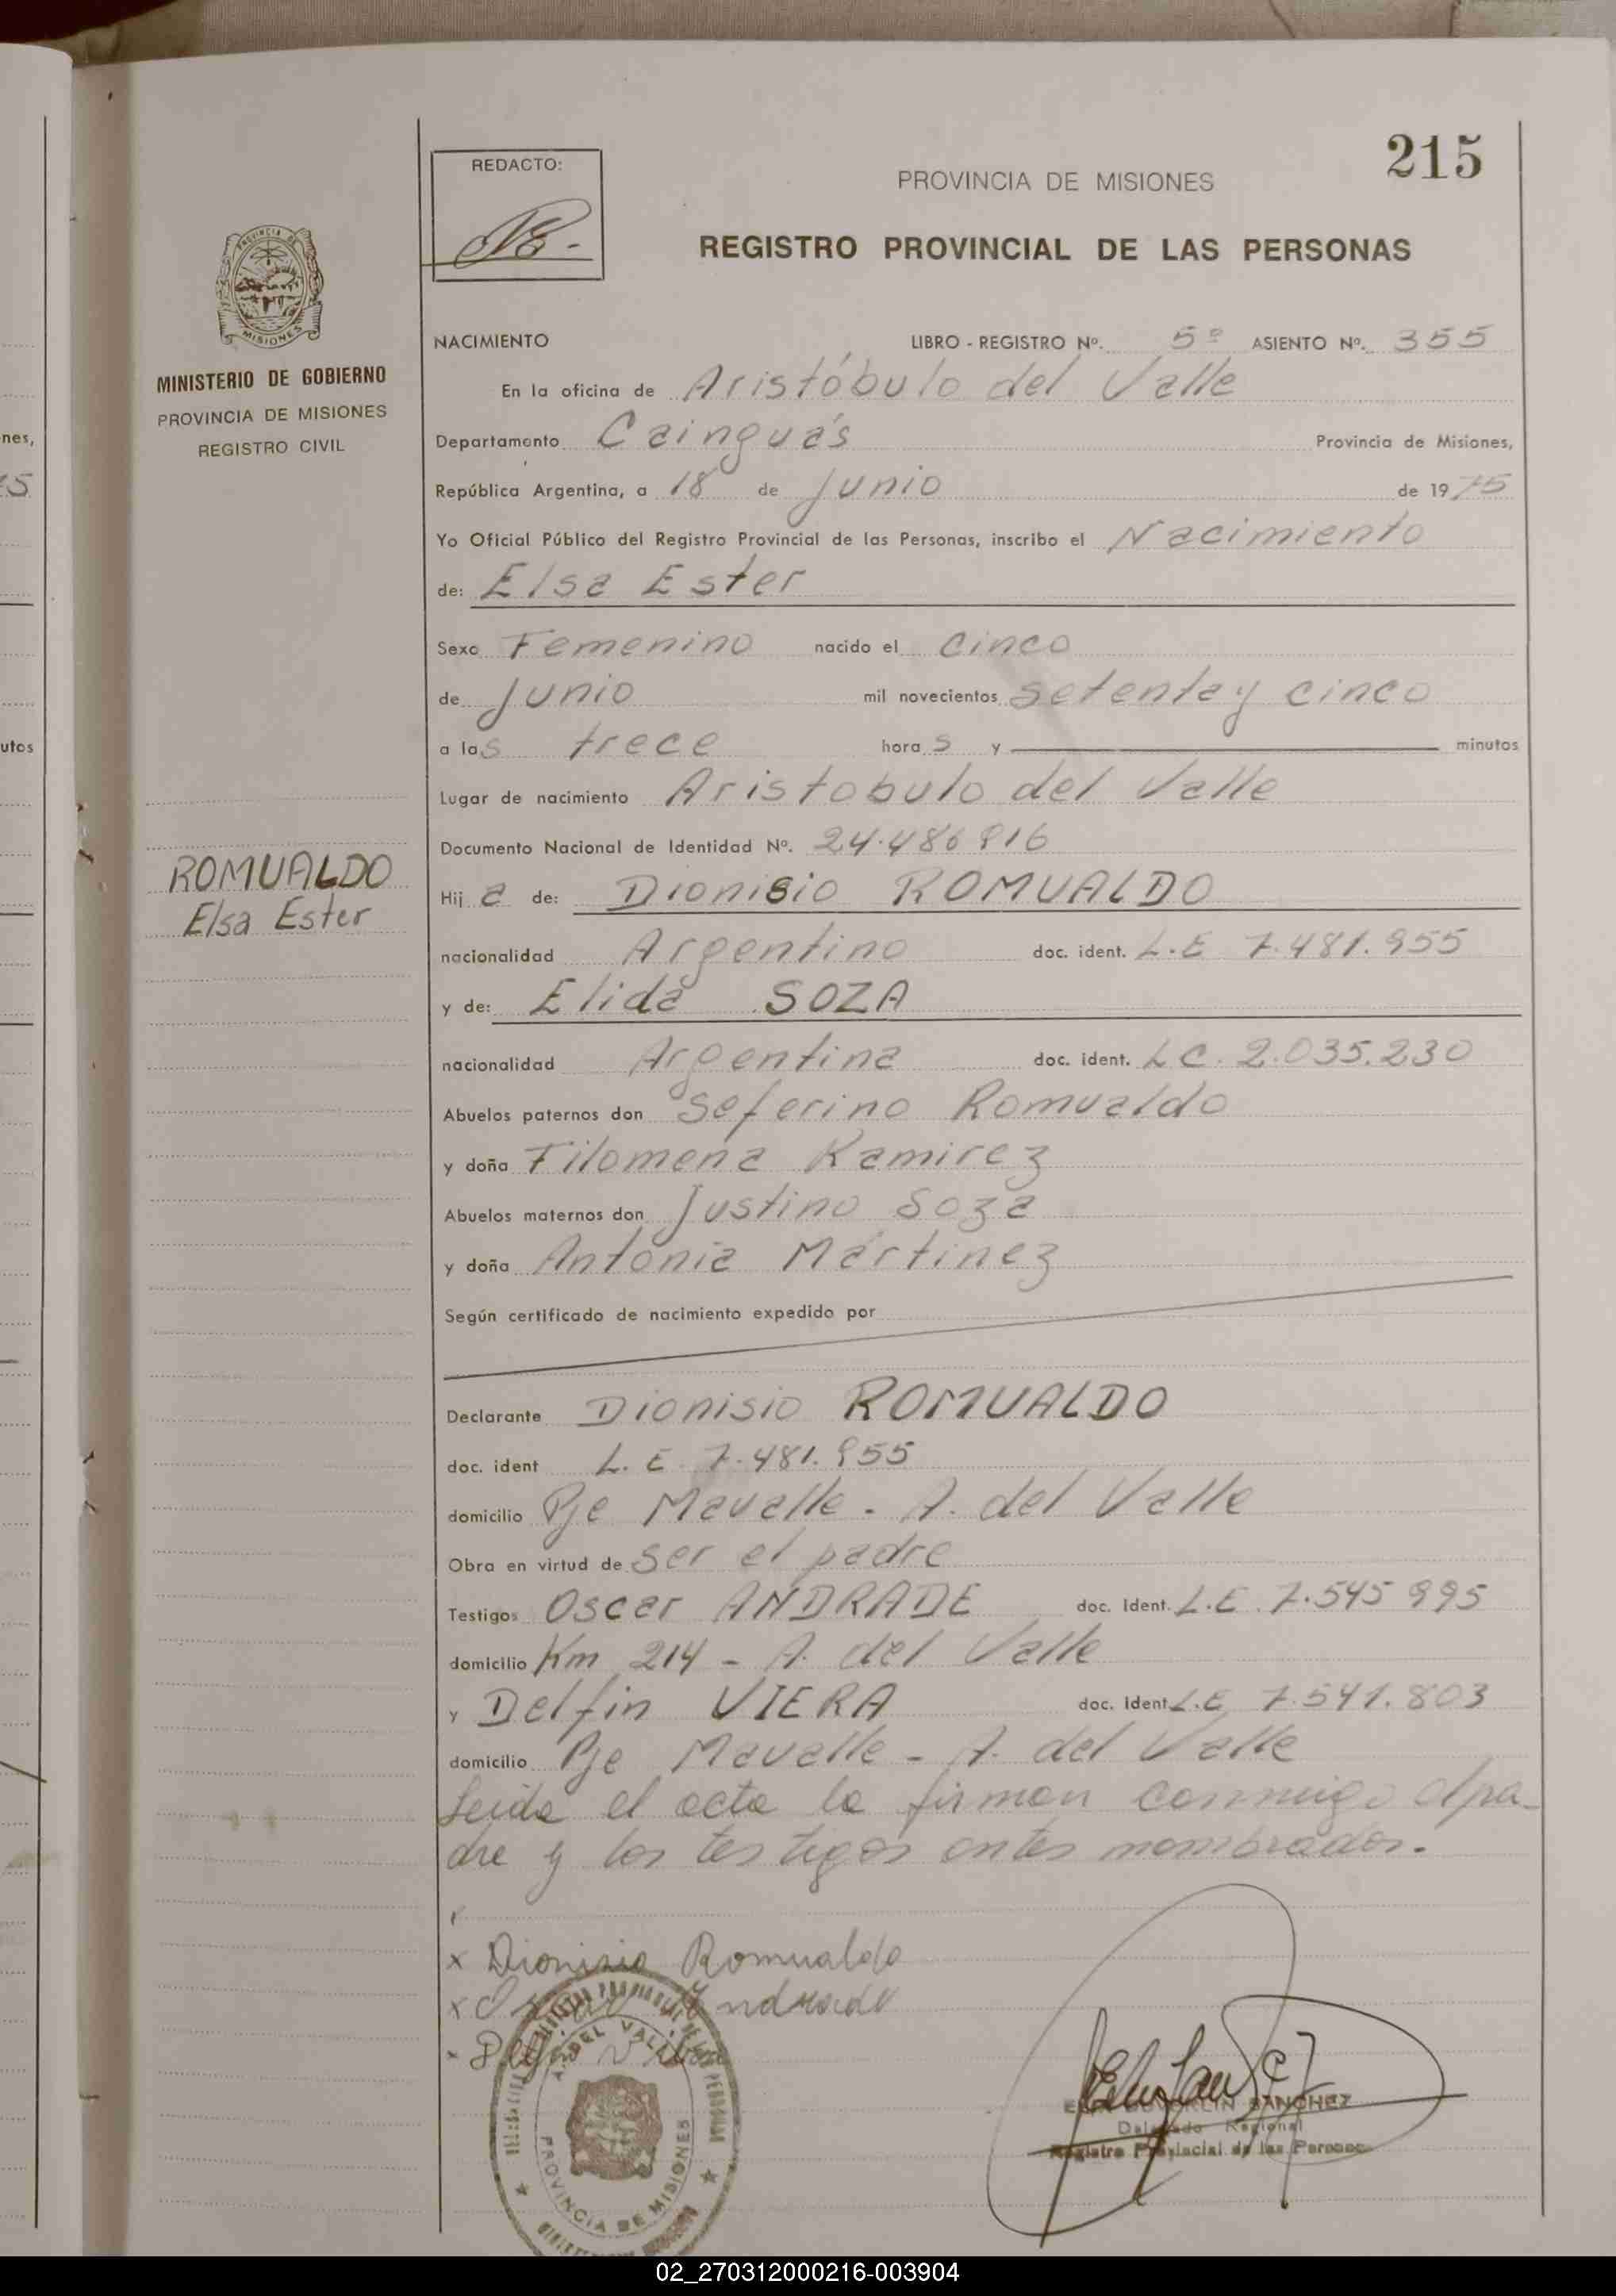 215
REDACTO:
PROVINCIA DE MISIONES
REGISTRO PROVINCIAL DE LAS PERSONAS
PROVINCIA DE
MISIONES
MINISTERIO DE GOBIERNO
PROVINCIA DE MISIONES
REGISTRO CIVIL
NACIMIENTO LIBRO - REGISTRO Nº. 5º ASIENTO Nº. 355
En la oficina de Aristóbulo del Valle
Departamento Cainguás Provincia de Misiones,
República Argentina, a 18 de Junio de 1975
Yo Oficial Público del Registro Provincial de las Personas, inscribo el Nacimiento
de: Elsa Ester
Sexo Femenino nacido el cinco
de Junio mil novecientos setenta y cinco
a las trece horas y minutos
Lugar de nacimiento Aristobulo del Valle
Documento Nacional de Identidad Nº. 24.486 916
ROMUALDO
Elsa Ester
Hija de: Dionisio ROMUALDO
nacionalidad Argentino doc. ident. L.E 7.481.955
y de: Elida SOZA
nacionalidad Argentina doc. ident. LC. 2.035.230
Abuelos paternos don Seferino Romualdo
y doña Filomena Ramirez
Abuelos maternos don Justino Soza
y doña Antonia Martinez
Según certificado de nacimiento expedido por
Declarante Dionisio ROMUALDO
doc. ident L. E 7.481.955
domicilio Pje Mavalle - A. del Valle
Obra en virtud de ser el padre
Testigos Oscar ANDRADE doc. Ident. L.E. 7.545 995
domicilio Km 214 - A. del Valle
y Delfin VIERA doc. ident L.E 7.541.803
domicilio Pje Mavalle - A. del Valle
Leida el acta la firman conmigo el pa-
dre y los testigos antes nombrados.
x Dionisio Romualdo
x Oscar Andrade
A. DEL VALLE
PROVINCIA DE MISIONES
SANCHEZ
Delegado Regional
Registro Provincial de las Personas
nes,
utos
02_270312000216-003904